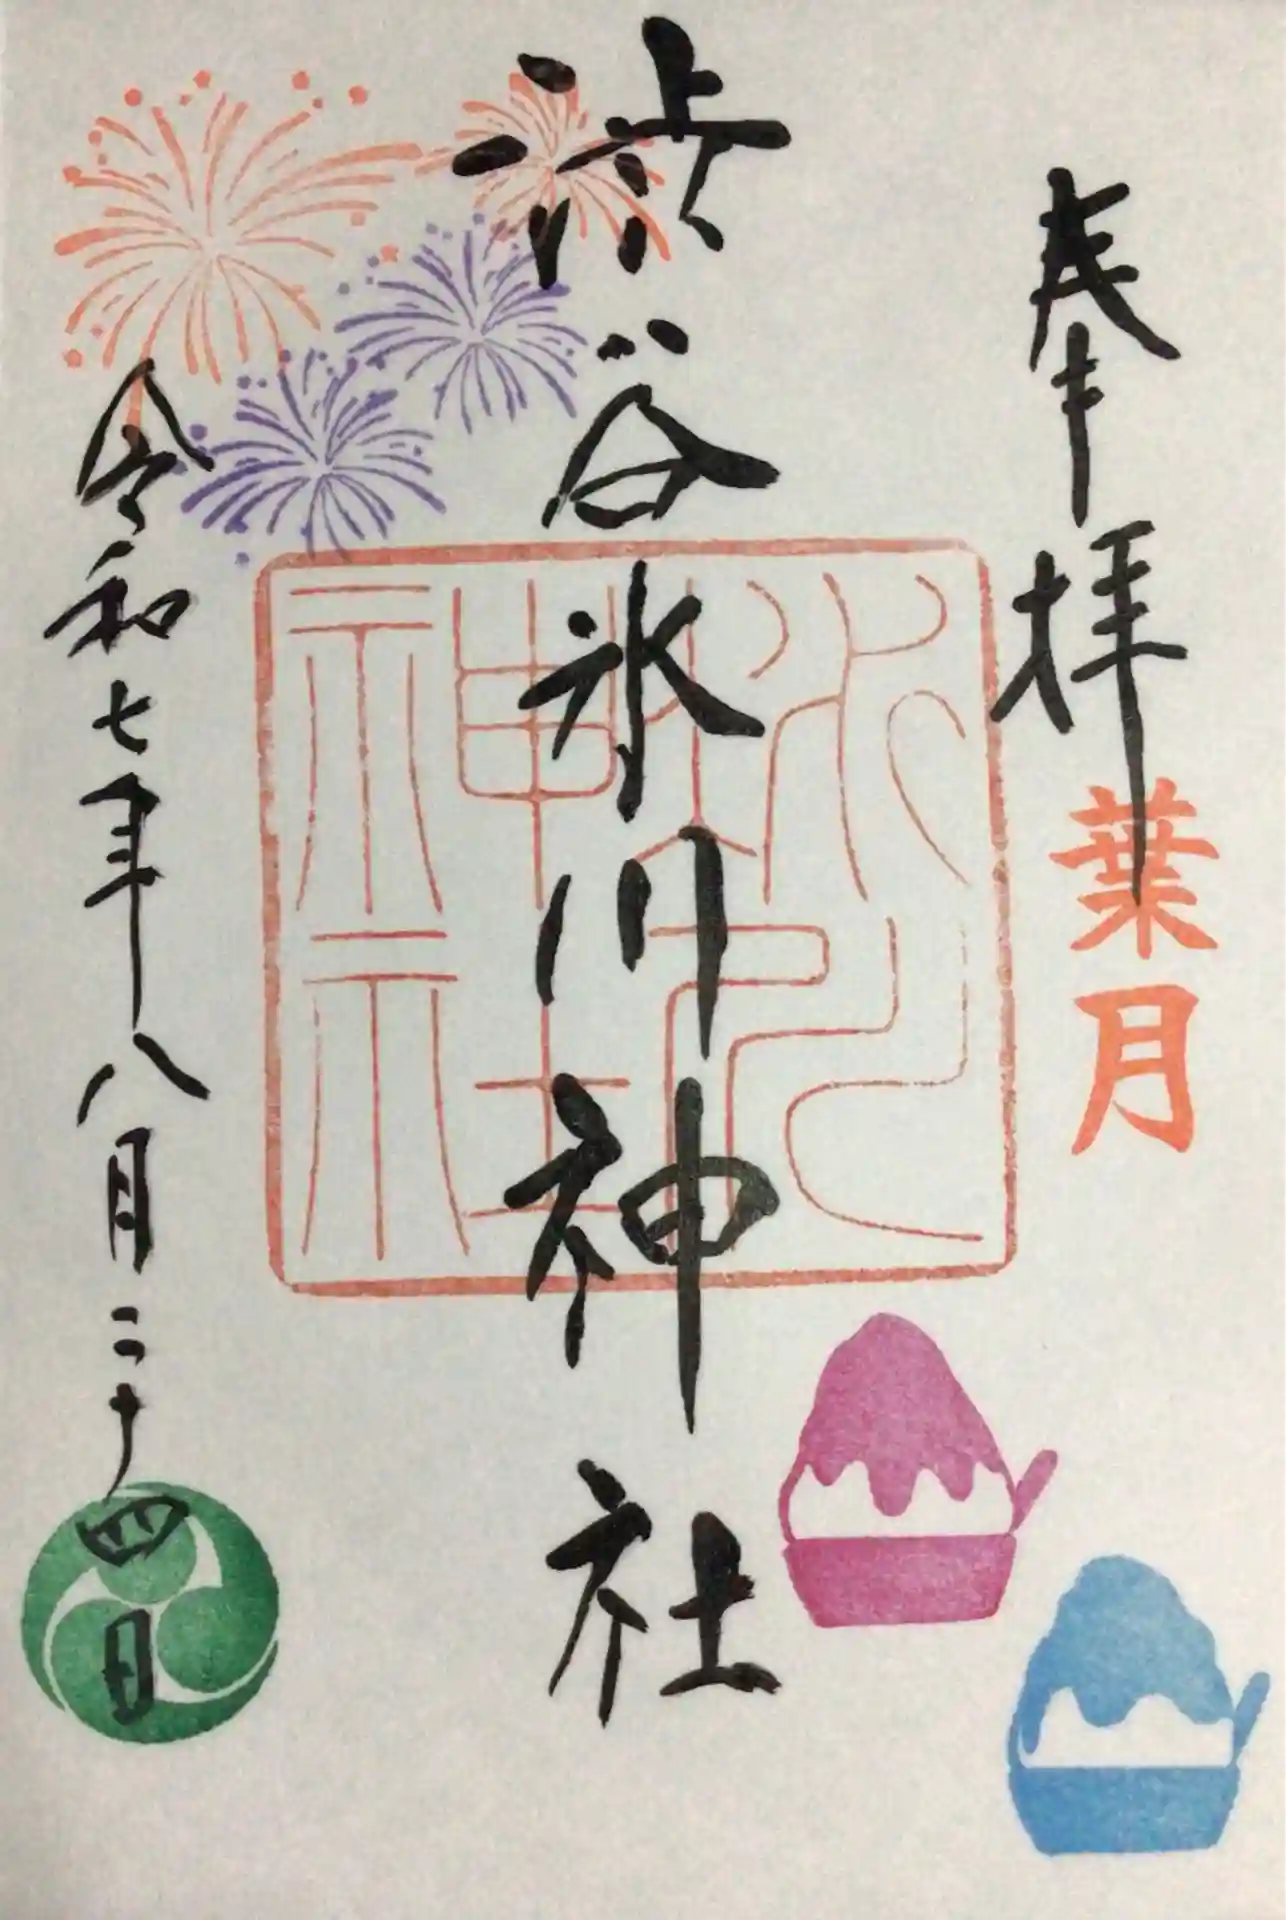 奉拝
葉月
渋谷氷川神社
氷川
神社
令和七年八月二十四日